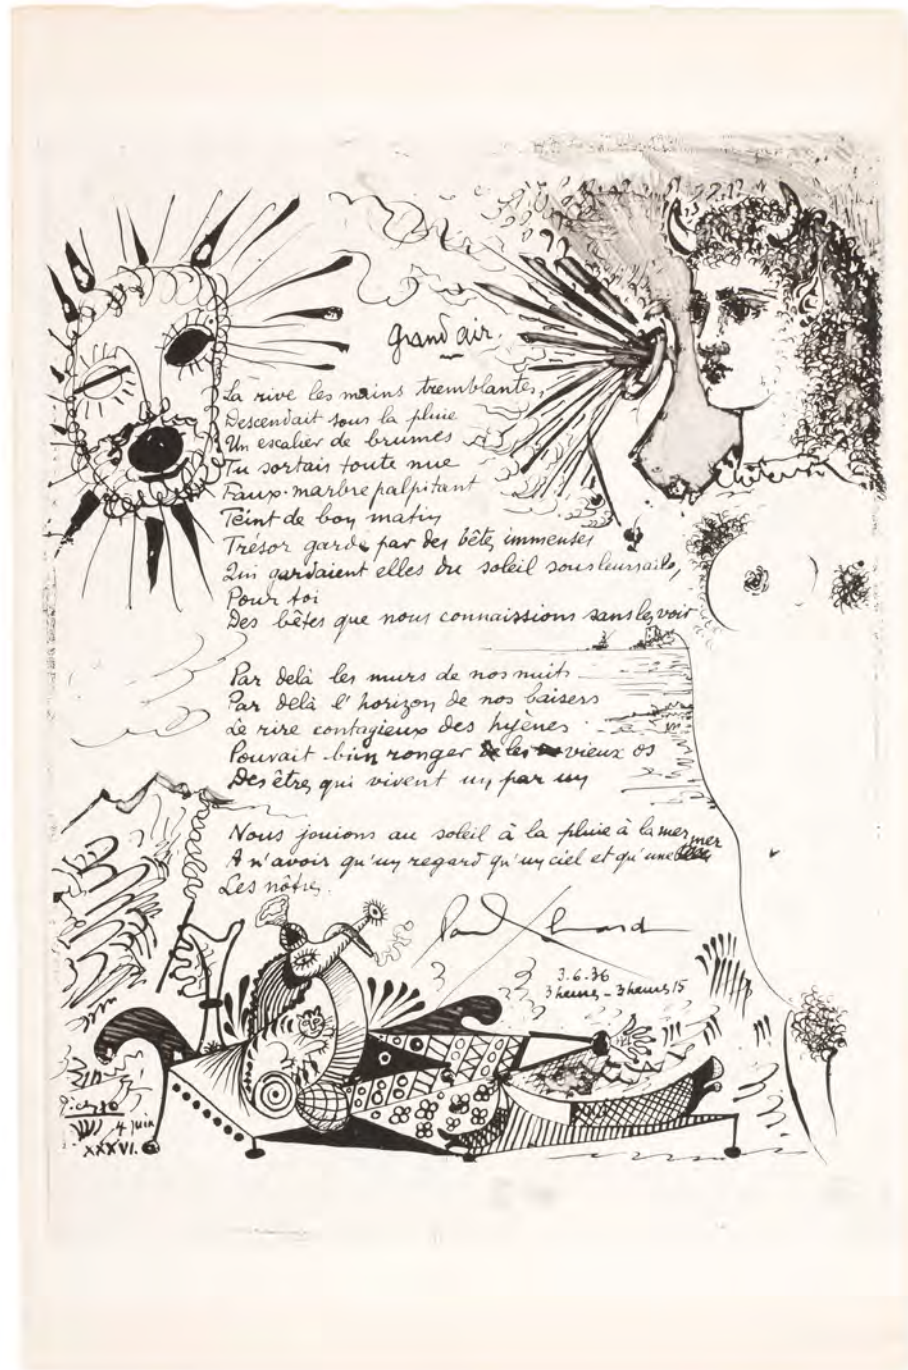 Grand air.
La rive les mains tremblantes,
Descendait sous la pluie
Un escalier de brumes
Tu sortais toute nue
Faux marbre palpitant
Teint de bon matin
Trésor gardé par des bêtes immenses
Qui gardaient elles du soleil sous leurs ailes,
Pour toi
Des bêtes que nous connaissions sans les voir
Par delà les murs de nos nuits
Par delà l'horizon de nos baisers
Le rire contagieux des hyènes
Pouvait bien ronger les vieux os
Des êtres qui vivent un par un
Nous jouions au soleil à la pluie à la mer mer
A n'avoir qu'un regard qu'un ciel et qu'une
Les nôtres.
Paul Eluard
3.6.36
3 heures - 3 heures 15
Picasso
4 juin
XXXVI.